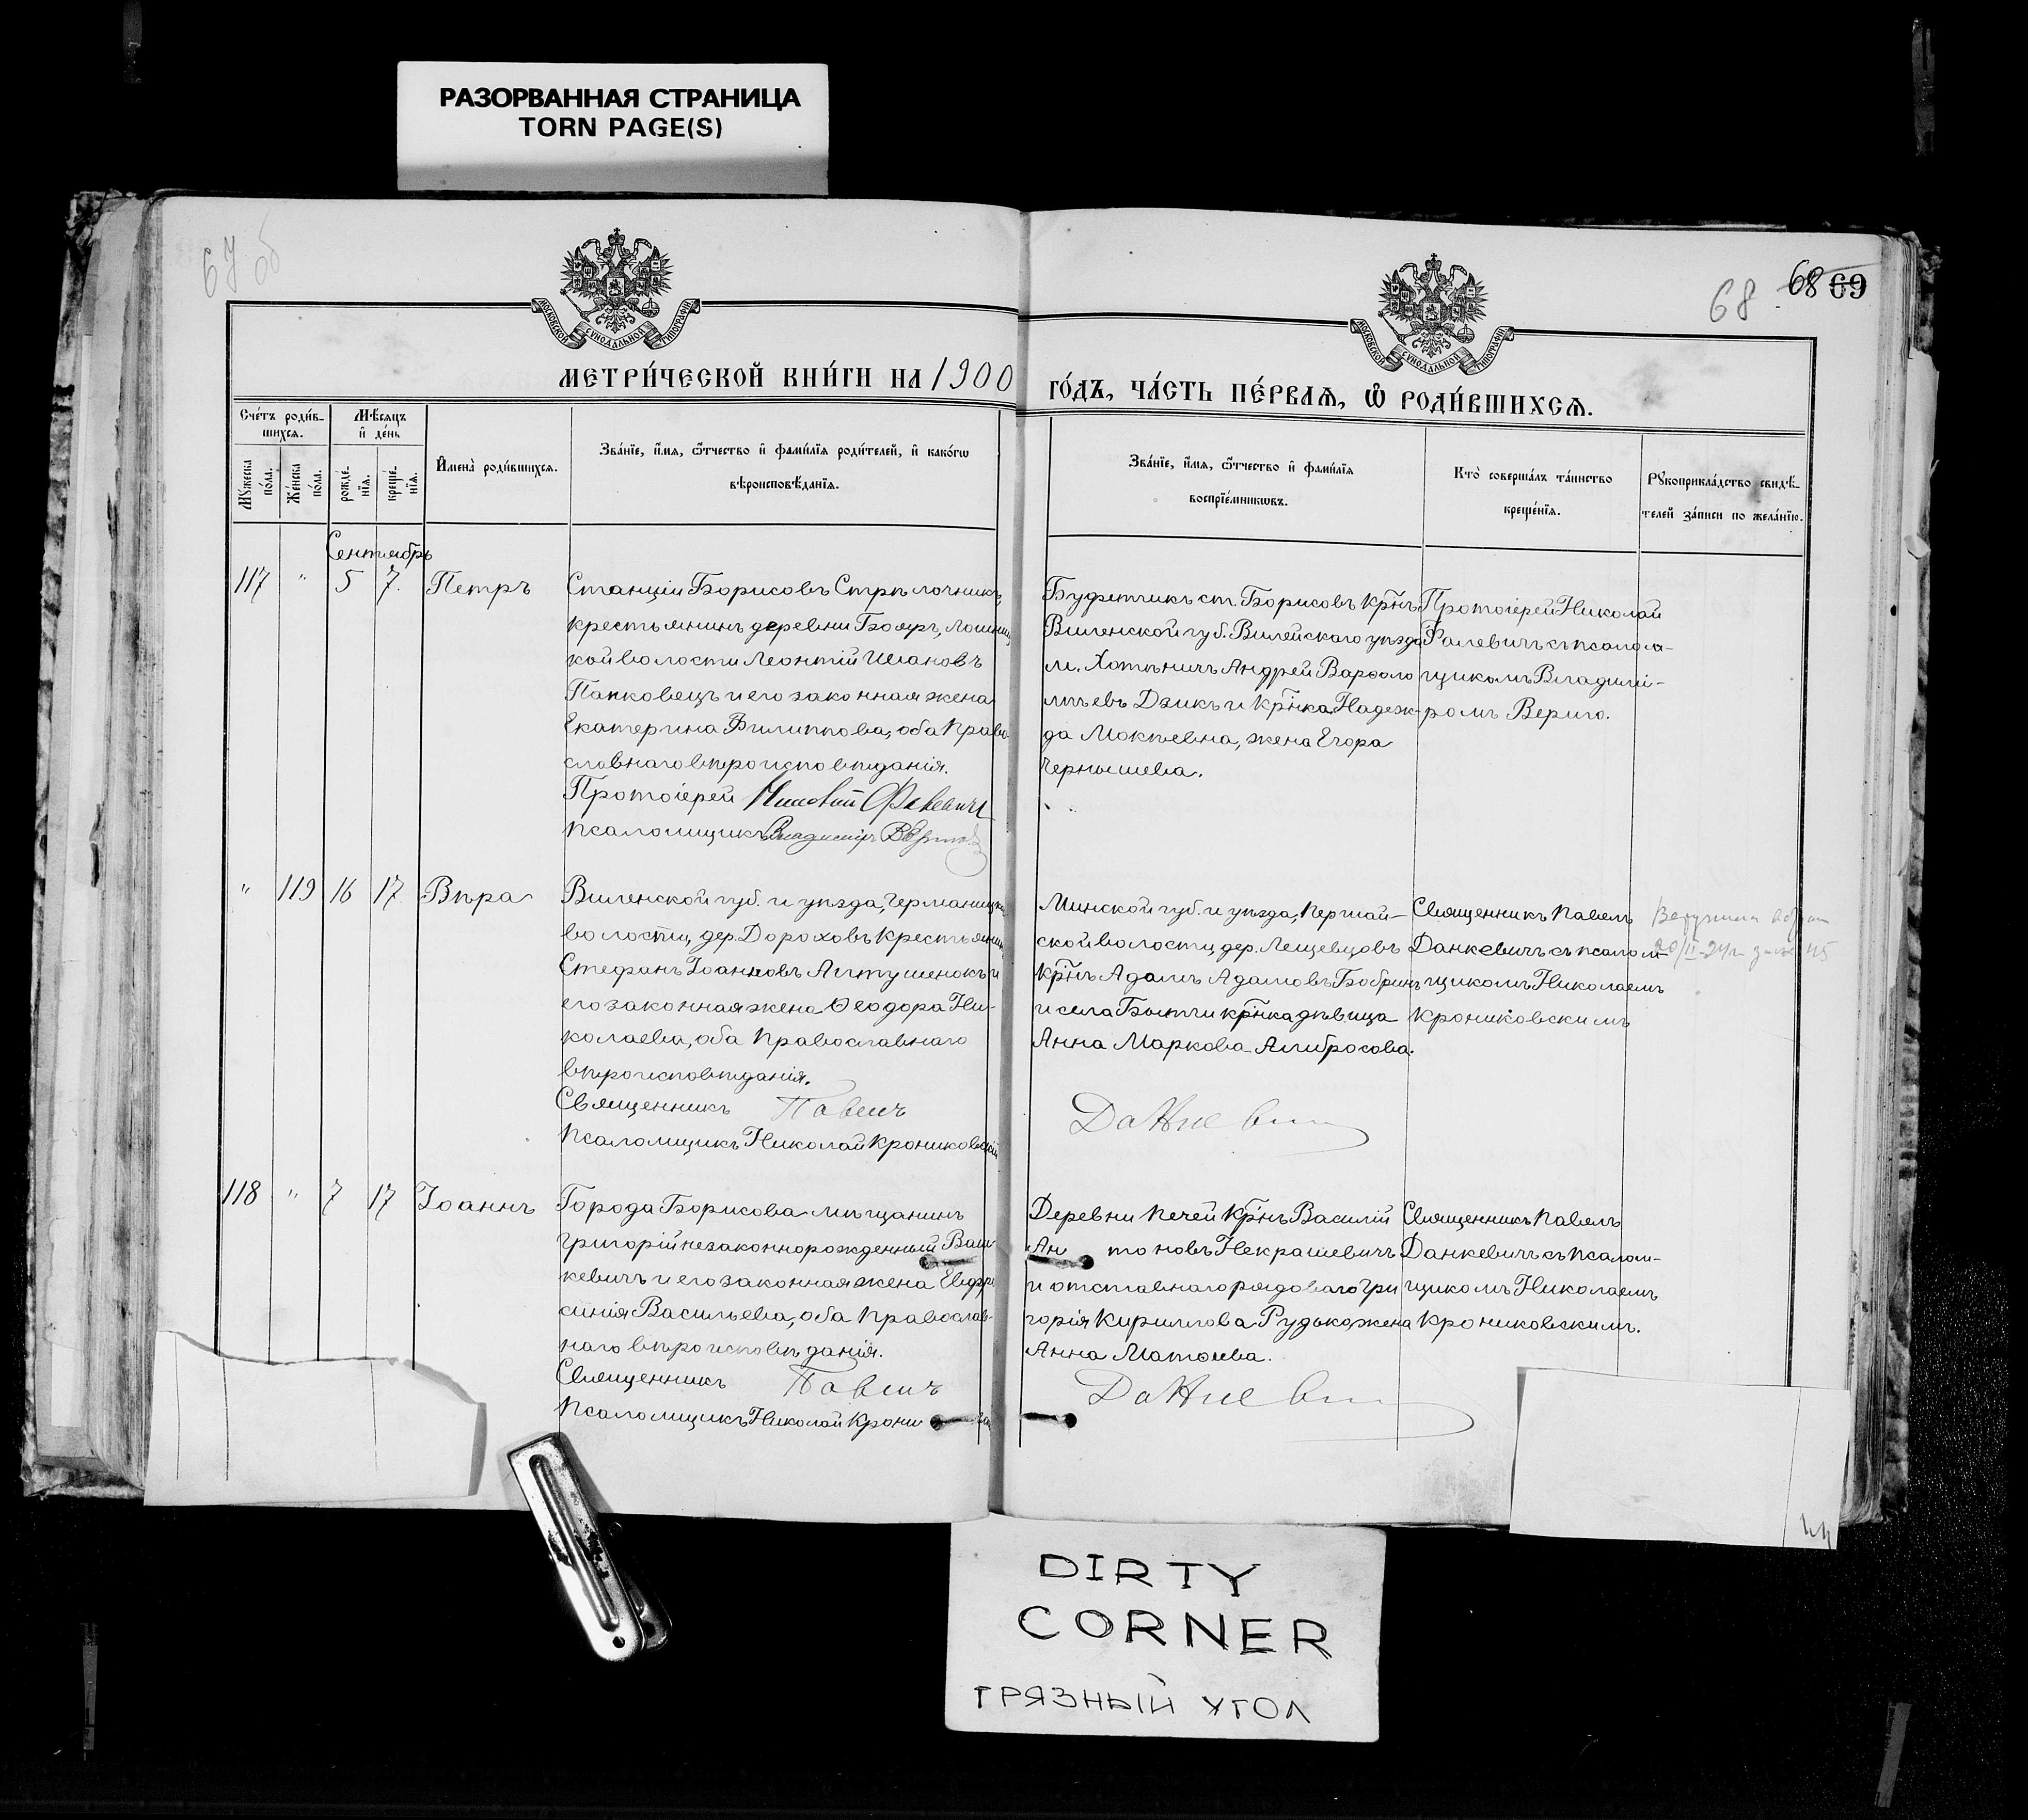 РАЗОРВАННАЯ СТРАНИЦА
TORN PAGE(S)
67 об
68
68 69
МОСКОВСКОЙ СѴНОДАЛЬНОЙ ТИПОГРАФІИ
МОСКОВСКОЙ СѴНОДАЛЬНОЙ ТИПОГРАФІИ
МЕТРИ́ЧЕСКОЙ КНИ́ГИ НА 1900
ГО́ДЪ, ЧА́СТЬ ПЕ́РВАѦ, Ѡ҆ РОДИ́ВШИХСѦ.
Сче́тъ роди́в-
шихсѧ.
Мѣ́сѧцъ
и҆ де́нь
Мꙋ́жеска
по́ла.
Же́нска
по́ла.
рожде́-
нїѧ.
креще́-
нїѧ.
И҆мена̀ роди́вшихсѧ.
Зва́нїе, и҆́мѧ, ѻ҆́тчество и҆ фами́лїѧ роди́телей, и҆ како́гѡ
вѣроисповѣ́данїѧ.
Зва́нїе, и҆́мѧ, ѻ҆́тчество и҆ фами́лїѧ
воспрїе́мникѡвъ.
Кто̀ соверша́лъ та́инство
креще́нїѧ.
Рꙋкоприкла́дство свидѣ́-
телей за́писи по жела́нїю.
Сентябрь
117 " 5 7. Петръ
Станціи Борисовъ Стрѣлочникъ,
крестьянинъ деревни Бояръ, Лошниц
кой волости Леонтій Ивановъ
Папковецъ и его законная жена
Екатерина Филиппова, оба Право
славнаго вѣроисповѣданія.
Протоіерей Николай Фалевичъ
Псаломщикъ Владиміръ Верига
Буфетчикъ ст. Борисовъ Кр̃нъ
Виленской губ. Вилейскаго уѣзда
м. Хотѣничъ Андрей Варѳоло
мѣевъ Дзикъ и Кр̃нка Надеж-
да Мокѣевна, жена Егора
Чернышева.
Протоіерей Николай
Фалевичъ съ псалом-
щикомъ Владимі-
ромъ Вериго.
" 119 16 17 Вѣра
Виленской губ. и уѣзда, Германишк
волости, дер. Дороховъ крестьянинъ
Стефанъ Іоанновъ Алтушенокъ и
его законная жена Ѳеодора Ни-
колаева, оба Православнаго
вѣроисповѣданія.
Священникъ Павелъ
Псаломщикъ Николай Крониковскій
Минской губ. и уѣзда, Першай-
ской волости, дер. Лещевцовъ
кр̃нъ Адамъ Адамовъ Бобринъ
и села Бытчи кр̃нка дѣвица
Анна Маркова Амбросова.
Данкевичъ
Священникъ Павелъ
Данкевичъ съ псалом-
щикомъ Николаемъ
Крониковскимъ
118 " 7 17 Іоаннъ
Города Борисова мѣщанинъ
Григорій незаконнорожденный Ваш
кевичъ и его законная жена Евфро
синія Васильева, оба Православ-
наго вѣроисповѣданія.
Священникъ Павелъ
Псаломщикъ Николай Крони
Деревни Печей Кр̃нъ Василій
Антоновъ Некрашевичъ
и отставнаго рядоваго Гри
горія Кириллова Рудько жена
Анна Матѳеева.
Данкевичъ
Священникъ Павелъ
Данкевичъ съ псалом-
щикомъ Николаемъ
Крониковскимъ.
DIRTY
CORNER
ГРЯЗНЫЙ УГОЛ